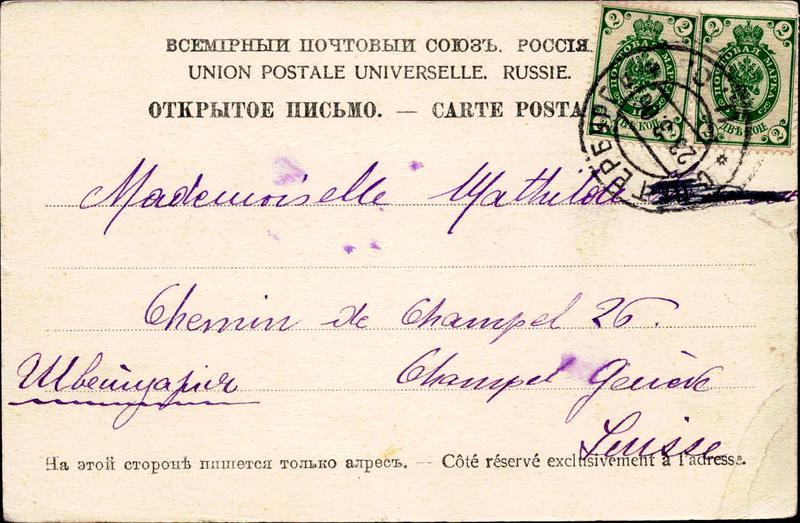 ВСЕМІРНЫЙ ПОЧТОВЫЙ СОЮЗЪ. РОССІЯ.
UNION POSTALE UNIVERSELLE. RUSSIE.
ОТКРЫТОЕ ПИСЬМО. — CARTE POSTA
2 2
ПОЧТОВАЯ МАРКА
ДВѢ КОП.
2 2
2 2
ПОЧТОВАЯ МАРКА
ДВѢ КОП.
2 2
Mademoiselle Mathilde
Chemin de Champel 26.
Швейцарія
Champel Genève
Suisse
На этой сторонѣ пишется только адресъ. — Côté réservé exclusivement à l'adresse.